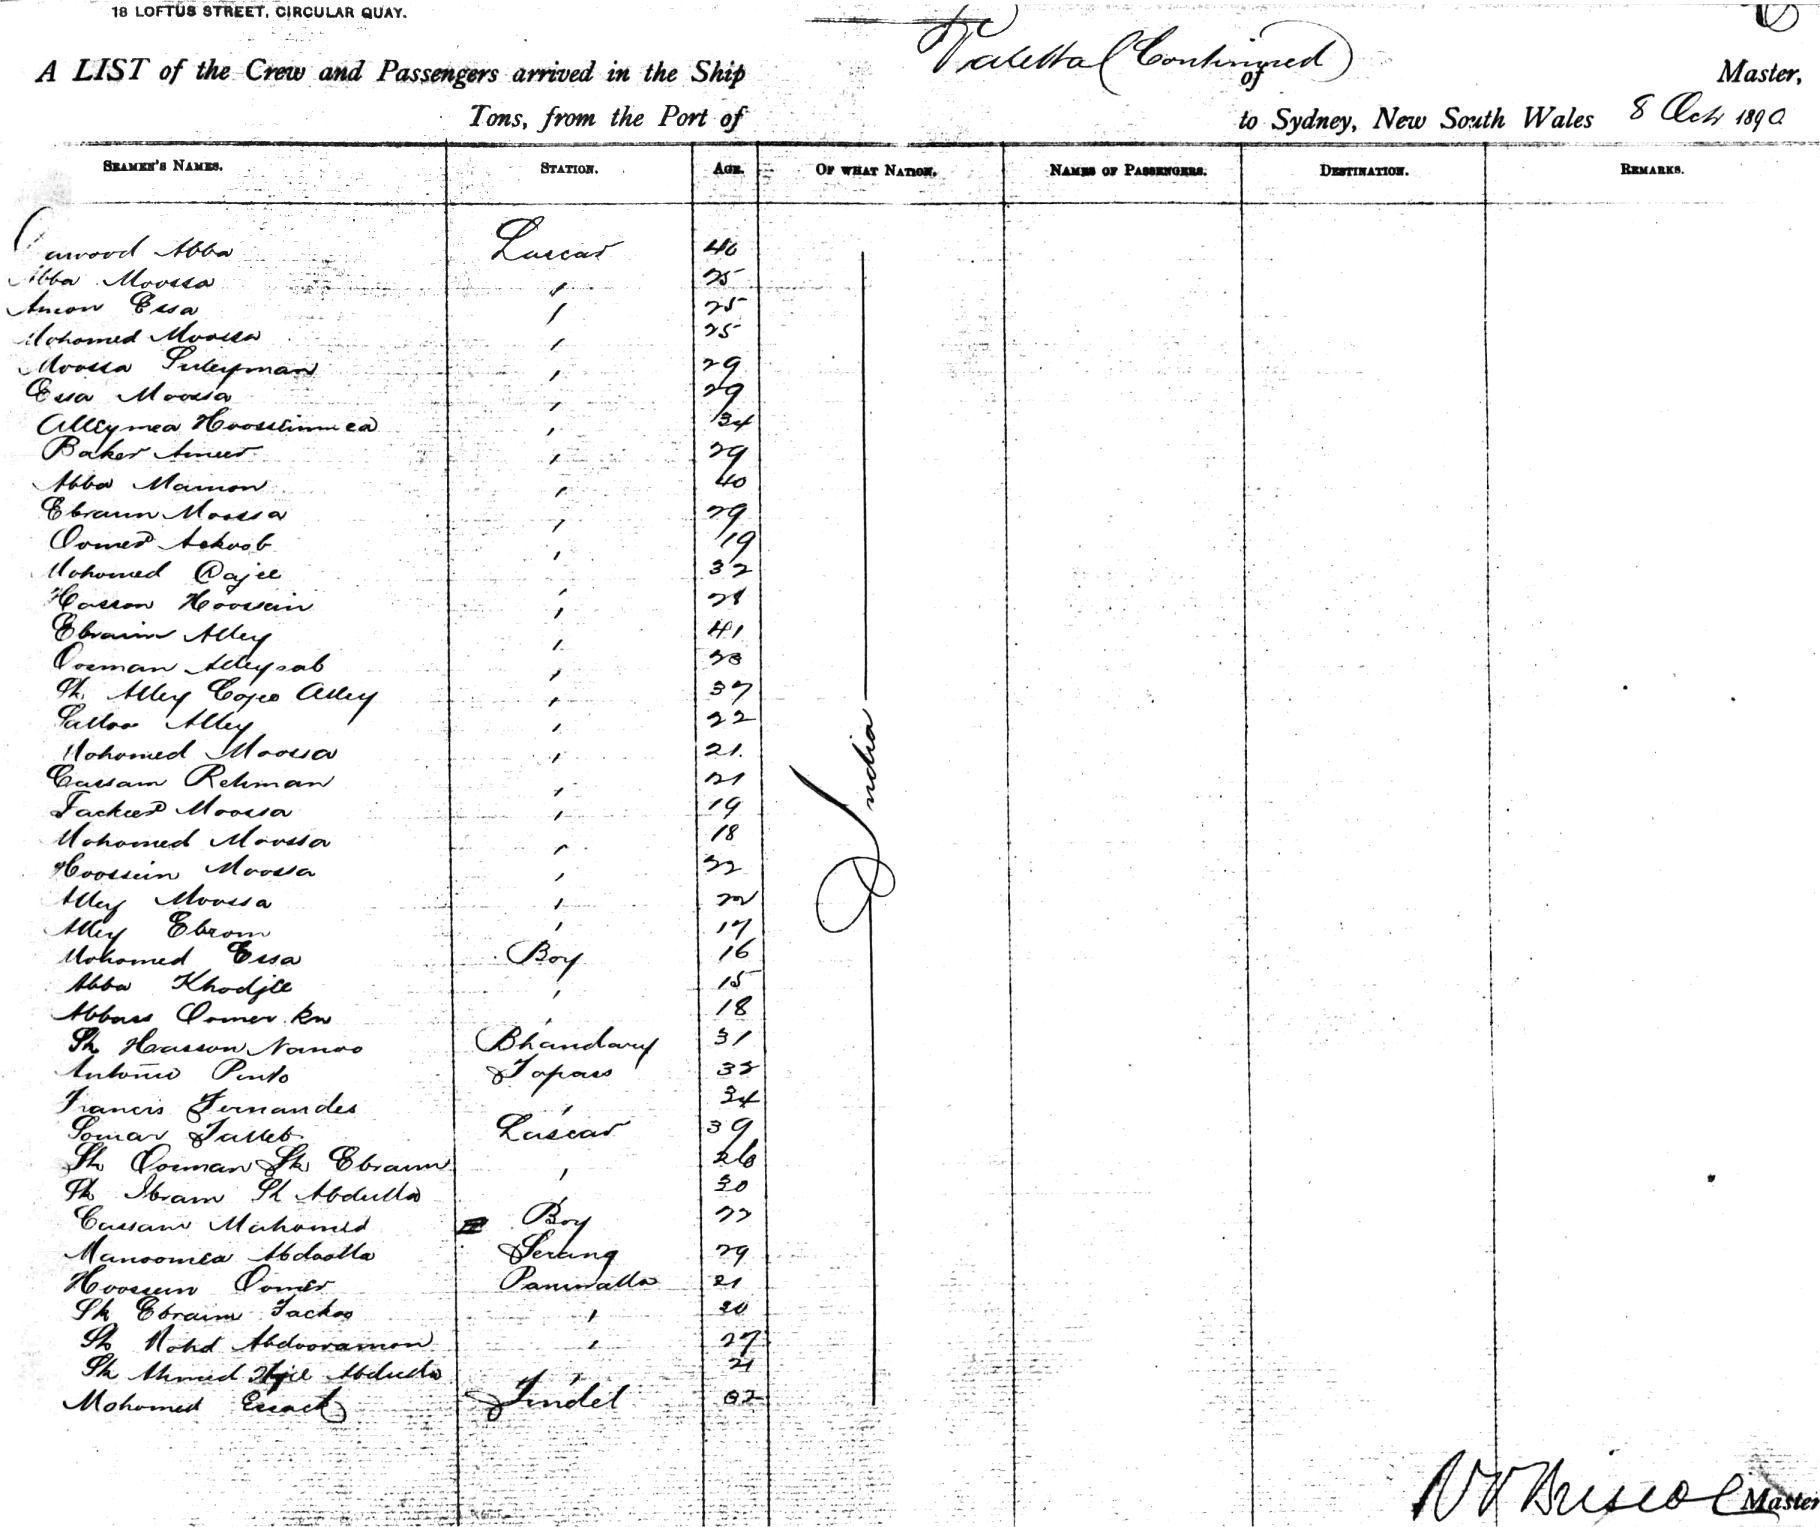 18 LOFTUS STREET, CIRCULAR QUAY.
Valetta (Continued)
A LIST of the Crew and Passengers arrived in the Ship of Master,
Tons, from the Port of to Sydney, New South Wales 8 Oct 1890
SEAMEN'S NAMES. STATION. AGE. OF WHAT NATION. NAMES OF PASSENGERS. DESTINATION. REMARKS.
Abba Lascar 40
Abba Moossa " 25
Amon Essa " 25
Mohomed Moossa " 25
Moossa Suleyman " 29
Essa Moossa " 29
Alleymea Hoosseinmea " 34
Baker Ameer " 29
Abba Mamon " 40
Ebraim Moossa " 29
Oomer Ackoob " 19
Mohomed Dajee " 32
Hasson Hoossein " 28
Ebraim Alley " 41
Oosman Alleysab "
Sk. Alley Cojee Alley " 37
Alley " 22
Mohomed Moossa " 21
Cassam Rehman " 21
Fackeer Moossa " 19
Mohomed Moossa " 18
Hoossein Moossa " 22
Alley Moossa " 22
Alley Ebrom " 17
India
Mohomed Essa Boy 16
Abba Khodjee " 15
Abbass Oomer " 18
Sk Hasson Nanoo Bhandary 31
Antonio Pinto Topass 32
Francis Fernandes " 34
Somar Talleb Lascar 39
Sk Oosman Sk Ebraim " 26
Sk Ibram Sk Abdulla " 30
Cassam Mahomed Boy 22
Manoomea Abdoolla Serang 29
Hoossein Oomer Paniwalla 21
Sk Ebraim Fackoo " 20
Sk Mohd Abdooramon " 27
Sk Ahmed Abdulla " 21
Mohomed Essack Tindel 32
Briscoe Master